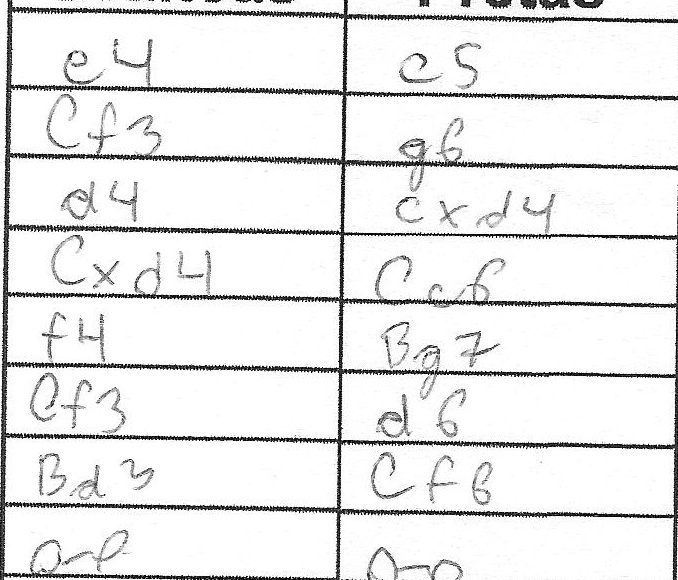 e4 c5
Cf3 g6
d4 cxd4
Cxd4 Cc6
f4 Bg7
Cf3 d6
Bd3 Cf6
0-0 0-0